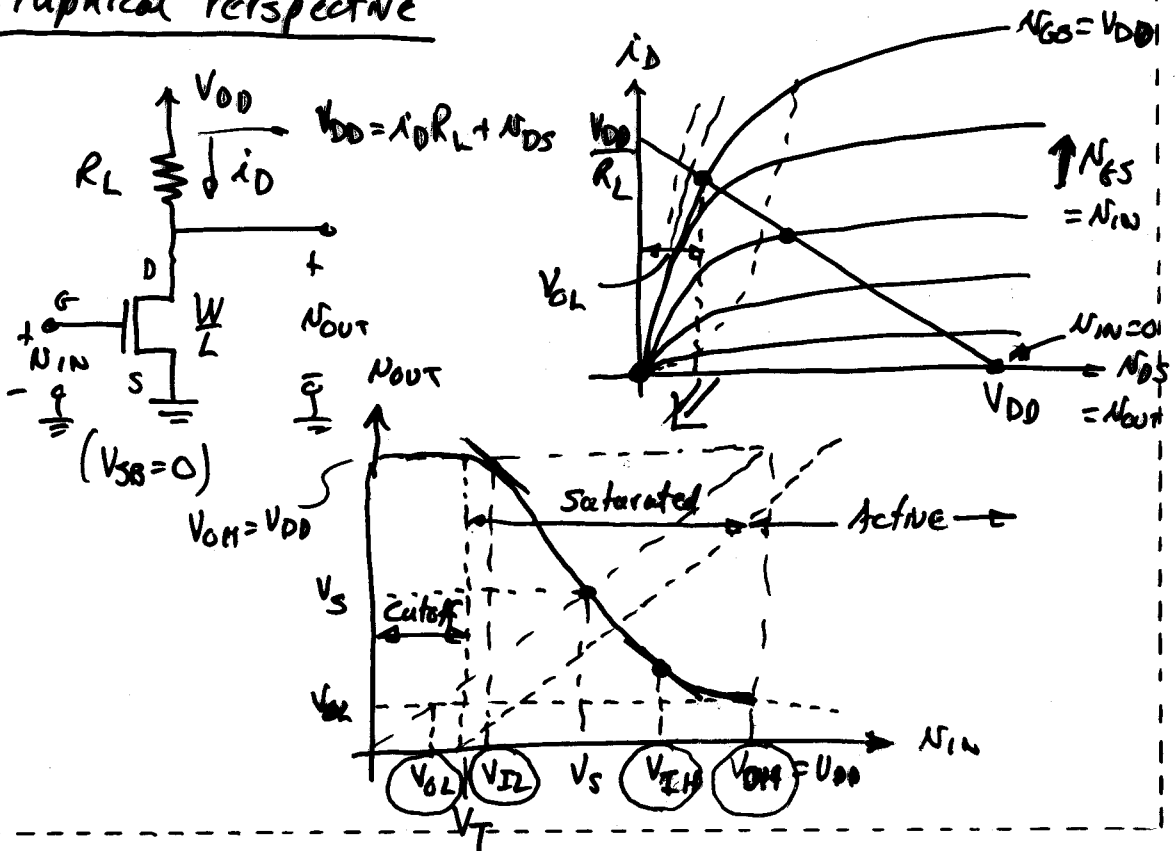 raphical Perspective
V_DD
V_DD = i_D R_L + v_DS
R_L
i_D
D
G
W/L
+
v_OUT
-
+
v_IN
-
S
(V_SB = 0)
i_D
v_GS = V_DD
V_DD/R_L
v_GS
= v_IN
V_OL
v_IN = 0
v_DS
= v_OUT
V_DD
v_OUT
V_OH = V_DD
Saturated
Active
V_S
Cutoff
V_OL
v_IN
V_OL
V_IL
V_S
V_IH
V_OH = V_DD
V_T